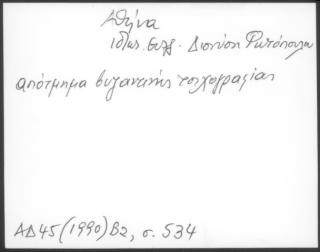 Αθήνα
Ιδιωτ. συλλ. Διονύση Φωτόπουλου
απότμημα βυζαντινής τοιχογραφίας
ΑΔ 45 (1990) Β2, σ. 534